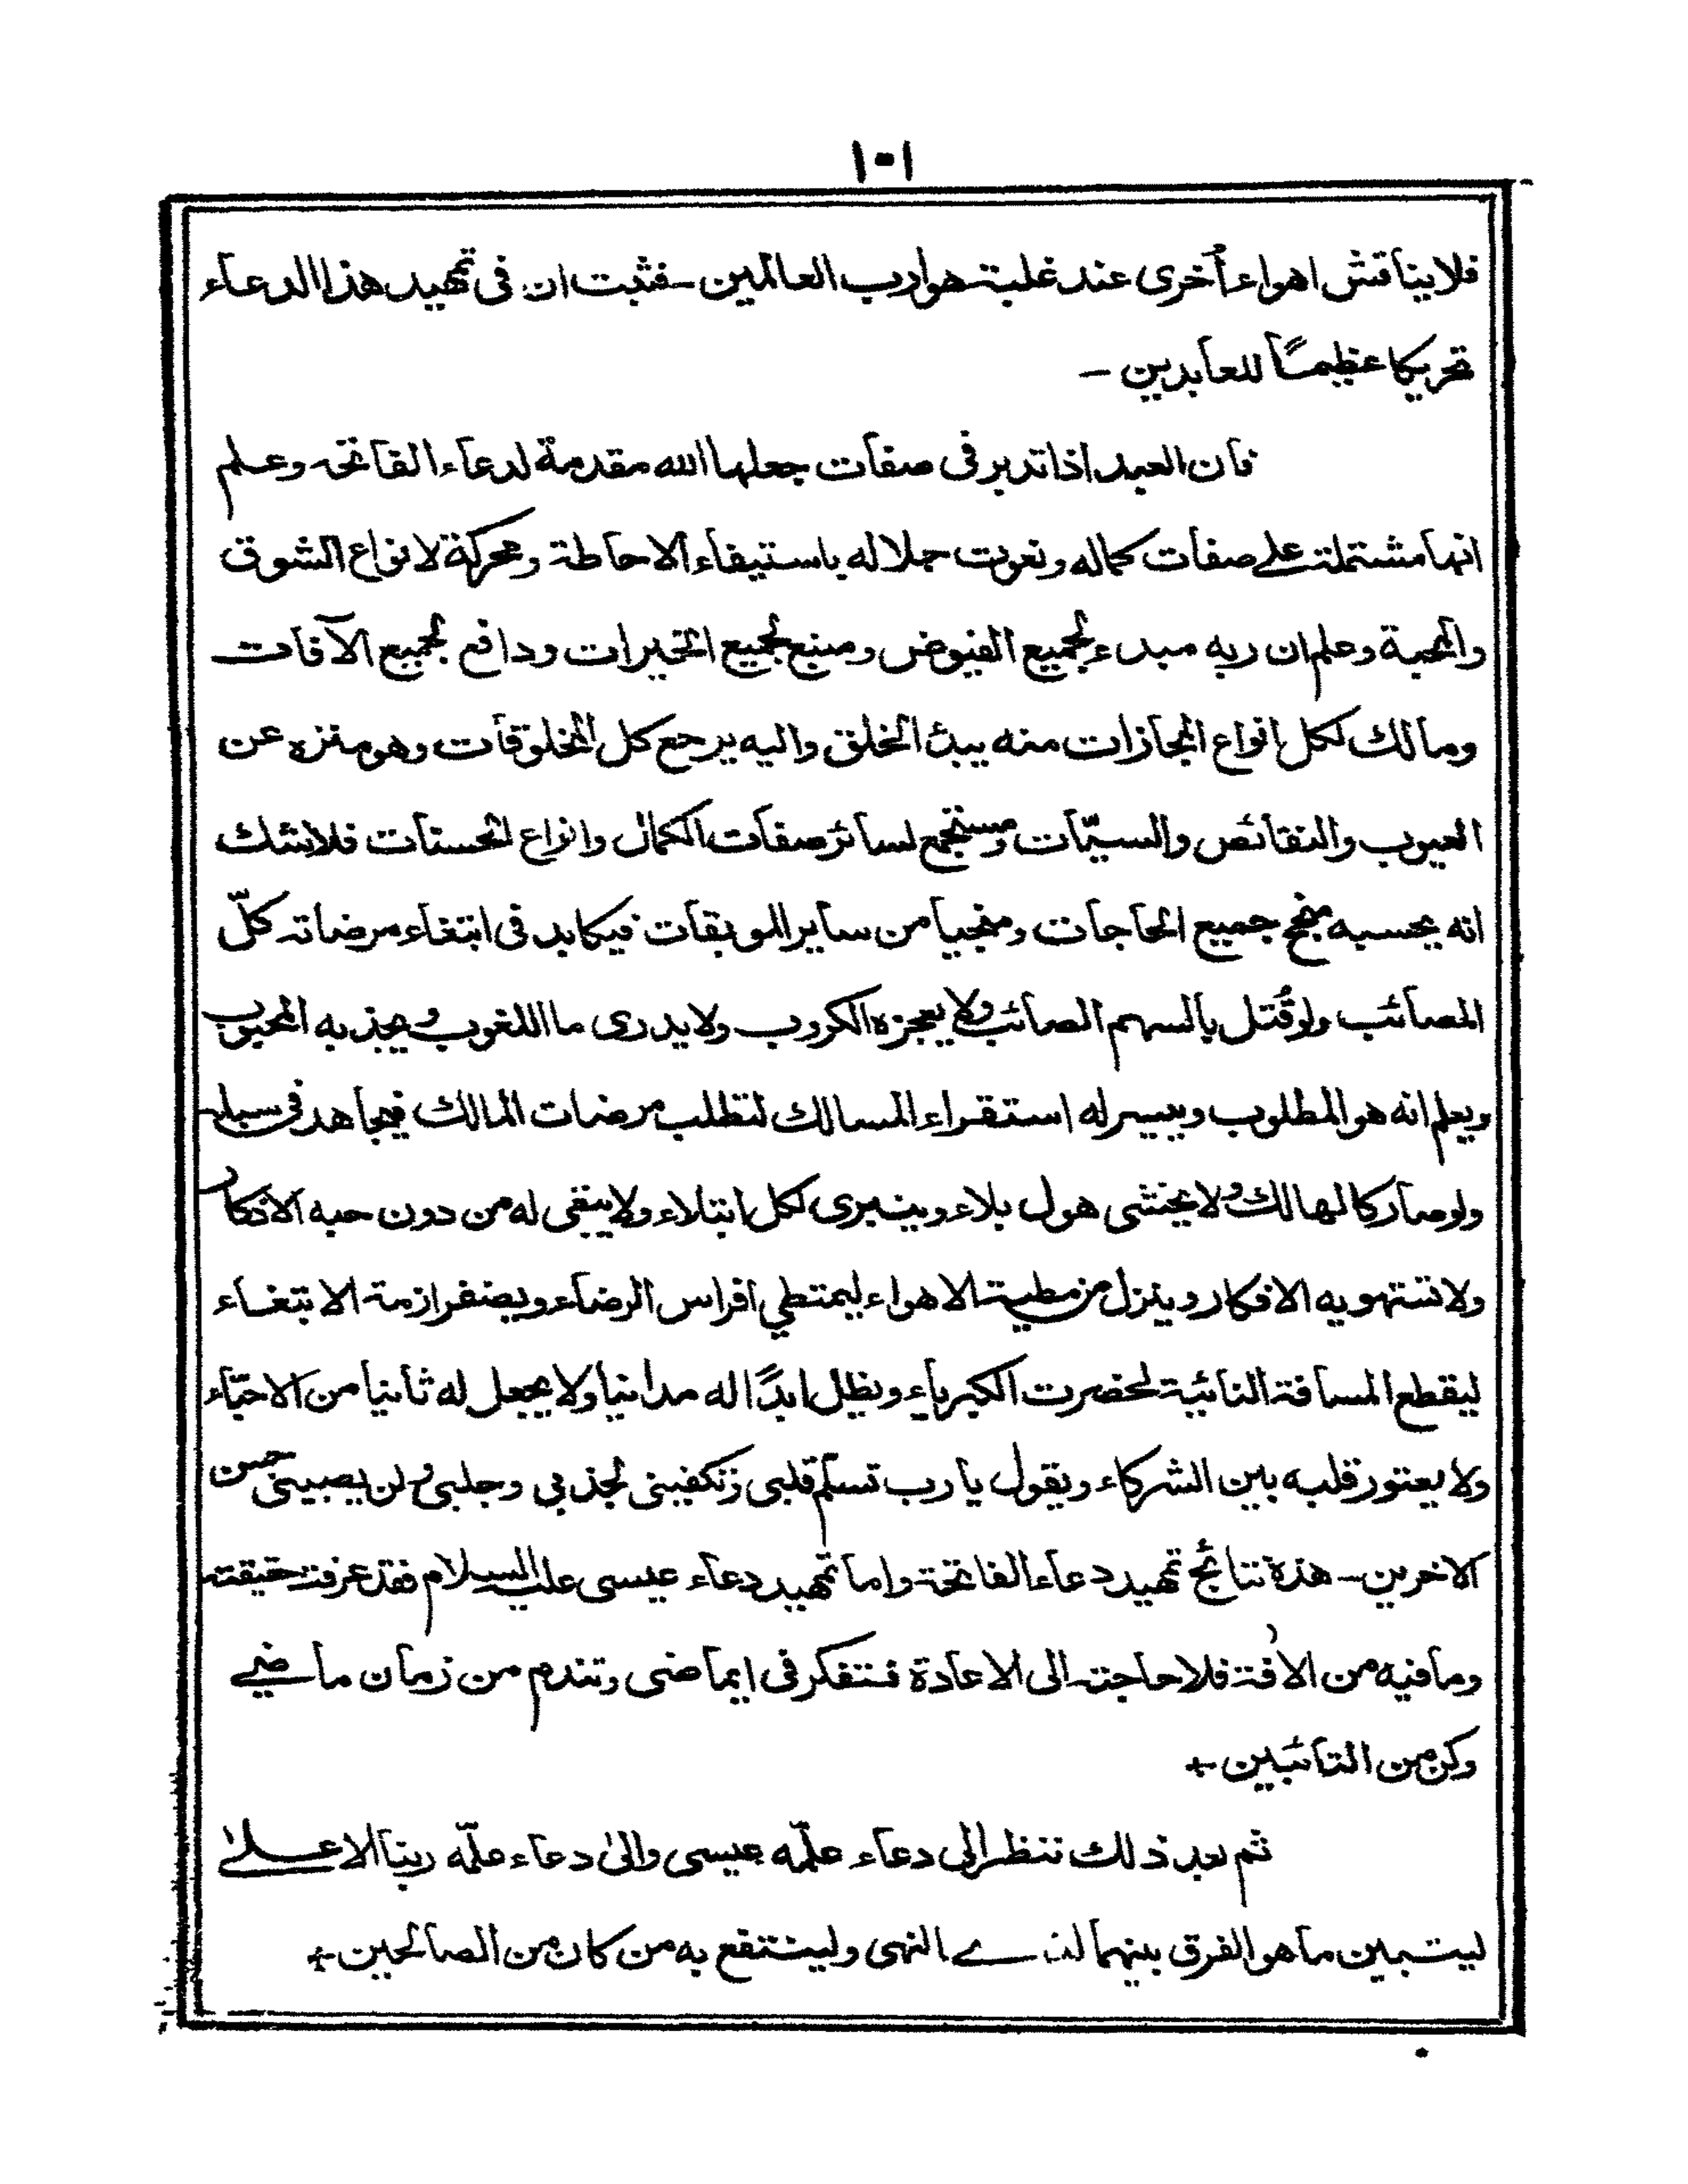 ١٠١
فلا يناقش اهواء أخرى عند غلبة هوا رب العالمين ـ فثبت ان فى تمهيد هذا الدعاء
تحريكا عظيمًا للعابدين ـ
فان العبد اذا تدبر فى صفات جعلها الله مقدمة لدعاء الفاتحة وعلم
انها مشتملة على صفات كماله ونعوت جلاله باستيفاء الاحاطة ومحركة لانواع الشوق
والمحبة وعلم ان ربه مبدء لجميع الفيوض ومنبع لجميع الخيرات ودافع لجميع الآفات
ومالك لكل انواع المجازات منه يبدئ الخلق واليه يرجع كل المخلوقات وهو منزه عن
العيوب والنقائص والسيّات ومستجمع لسائر صفات الكمال وانواع الحسنات فلا شك
انه يحسبه منجح جميع الحاجات ومنجيا من سائر الموبقات فيكابد فى ابتغاء مرضاته كلّ
المصائب ولو قُتل بالسهم الصائب ولا يعجزه الكروب ولا يدرى ما اللغوب ويجذبه المحبوب
ويعلم انه هو المطلوب وييسر له استقراء المسالك لتطلب مرضات المالك فيجاهد فى سبله
ولو صار كالهالك ولا يخشى هول بلاء وينبرى لكل ابتلاء ولا يبقى له من دون حبه الاذكار
ولا تستهويه الافكار وينزل من مطية الاهواء ليمتطي افراس الرضاء ويضفر ازمة الابتغاء
ليقطع المسافة النائية لحضرت الكبرياء ويظل ابدًا له مدانيا ولا يجعل له ثانيا من الاحبّاء
ولا يعتور قلبه بين الشركاء ويقول يا رب تسلّم قلبى وتكفينى لجذبي وجلبى ولن يصبينى حسن
الاخرين ـ هذه نتائج تمهيد دعاء الفاتحة واما تمهيد دعاء عيسى عليه السلام فقد عرفت حقيقته
وما فيه من الافة فلا حاجة الى الاعادة فتفكر فى ايماضى وتندم من زمان ماضي
وكن من التائبين +
ثم بعد ذلك ننظر الى دعاء علّمه عيسى والىٰ دعاء علّمه ربنا الاعلىٰ
ليتبين ما هو الفرق بينهما لذے النهى ولينتفع به من كان من الصالحين +